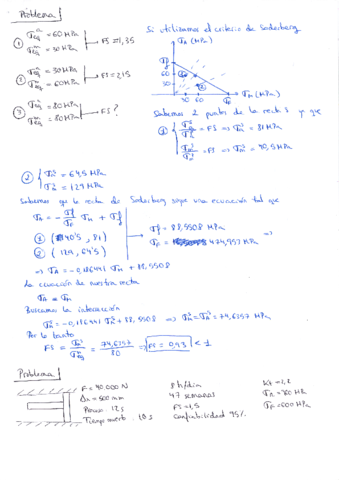 Problema 1
① σa eq = 60 MPa
σm eq = 30 MPa → FS = 1,35
② σa eq = 30 MPa
σm eq = 60 MPa → FS = 2,15
③ σa eq = 80 MPa
σm eq = 80 MPa → FS?
Si utilizamos el criterio de Soderberg
σa (MPa)
60
30
30 60
σm (MPa)
Sabemos 2 puntos de la recta ya que
= FS ⇒ = 81 MPa
⇒ = 40,5 MPa
② = 64,5 MPa
= 129 MPa
Sabemos que la recta de Soderberg sigue una ecuación tal que
① (40'5, 81)
② (129, 64'5)
= 88,5508 MPa
= 474,957 MPa ⇒
⇒ σa = -0,186441 σm + 88,5508
La ecuación de nuestra recta
σa = σm
Buscamos la intersección
= -0,186441 + 88,5508 ⇒ = 74,6357 MPa
Por lo tanto
FS = = 74,6357 / 80 ⇒ FS = 0,93 < 1
Problema
F = 40.000 N
= 500 mm
12 s
Tiempo muerto 10 s
8 h/día
47 semanas
FS = 1,5
Confiabilidad 95%
= 360 MPa
= 600 MPa